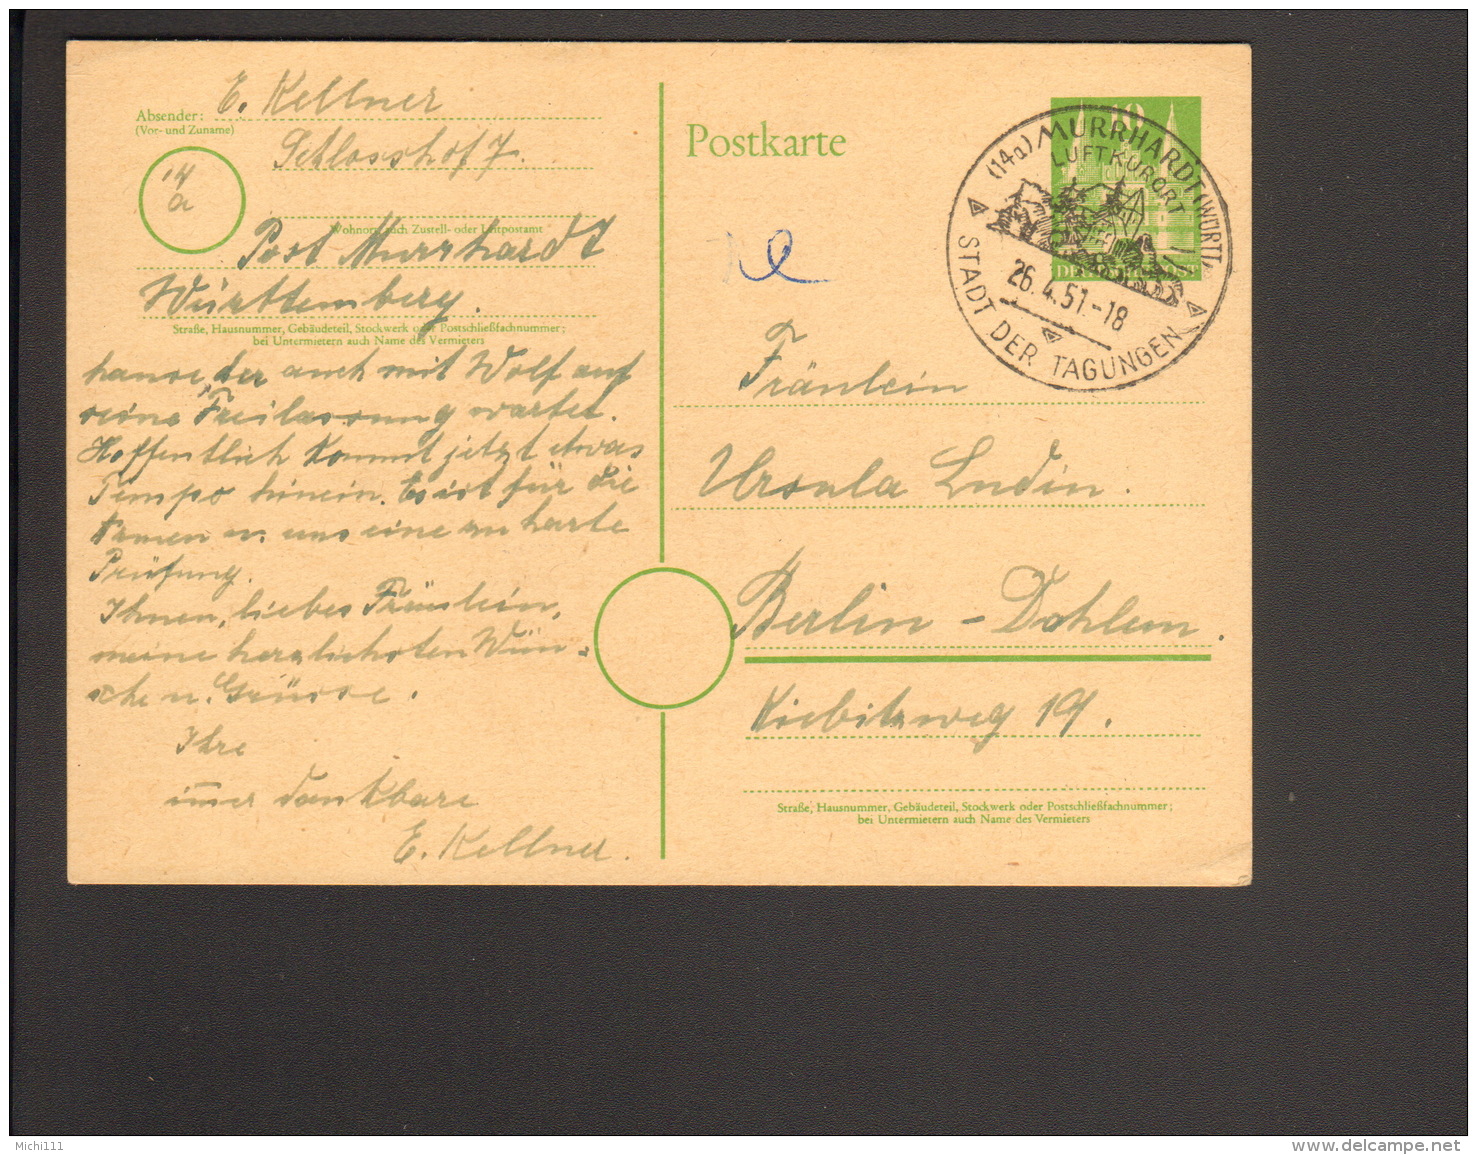 Absender: E. Kellner
(Vor- und Zuname)
Schlosshof 7.
14
a
Wohnort, auch Zustell- oder Leitpostamt
Post Murrhardt
Württemberg.
Straße, Hausnummer, Gebäudeteil, Stockwerk oder Postschließfachnummer;
bei Untermietern auch Name des Vermieters
hause, der auch mit Wolf auf
seine Freilassung wartet.
Hoffentlich kommt jetzt etwas
Tempo hinein. Es ist für die
Frauen u. uns eine zu harte
Prüfung.
Ihnen, liebes Fräulein,
meine herzlichsten Wün-
sche u. Grüsse.
Ihre
immer dankbare
E. Kellner.
Postkarte
10
DEUTSCHE POST
(14a) MURRHARDT (WÜRTT.)
LUFTKURORT
26.4.51.-18
STADT DER TAGUNGEN
Fräulein
Ursula Ludin.
Berlin - Dahlem.
Kiebitzweg 19.
Straße, Hausnummer, Gebäudeteil, Stockwerk oder Postschließfachnummer;
bei Untermietern auch Name des Vermieters
Michi111
delcampe.net